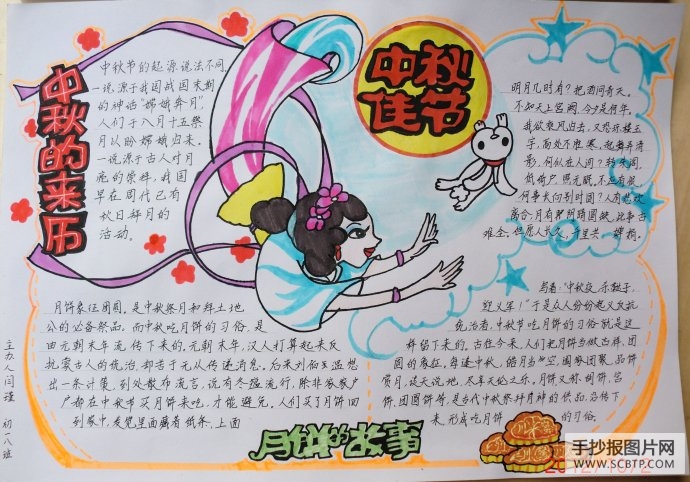 中秋的来历
中秋节的起源说法不同,
一说源于我国战国末期
的神话“嫦娥奔月”,
人们于八月十五祭
月以盼嫦娥归来。
一说源于古人对月
亮的崇拜,我国
早在周代已有
秋日拜月的
活动。
中秋佳节
明月几时有?把酒问青天。
不知天上宫阙,今夕是何年。
我欲乘风归去,又恐琼楼玉
宇,高处不胜寒。起舞弄清
影,何似在人间?转朱阁,
低绮户,照无眠。不应有恨,
何事长向别时圆?人有悲欢
离合,月有阴晴圆缺,此事古
难全。但愿人长久,千里共婵娟。
月饼象征团圆,是中秋祭月和拜土地
公的必备祭品。而中秋吃月饼的习俗,是
由元朝末年流传下来的。元朝末年,汉人打算起来反
抗蒙古人的统治,却苦于无从传递消息。后来刘伯温想
出一条计策,到处散布流言,说有冬瘟流行,除非家家户
户都在中秋节买月饼来吃,才能避免。人们买了月饼回
到家中,发觉里面藏着纸条,上面
写着:“中秋夜,杀鞑子,
迎义军!”于是众人纷纷起义反抗
统治者,中秋节吃月饼的习俗就是这
样留下来的。古往今来,人们把月饼当做吉祥、团
圆的象征。每逢中秋,皓月当空,阖家团聚,品饼
赏月,谈天说地,尽享天伦之乐。月饼又称胡饼、宫
饼、团圆饼等,是古代中秋祭拜月神的供品,沿传下
来,形成吃月饼的习俗。
月饼的故事
主办人闫瑾
初二八班
手抄报图片网
WWW.SCBTP.COM